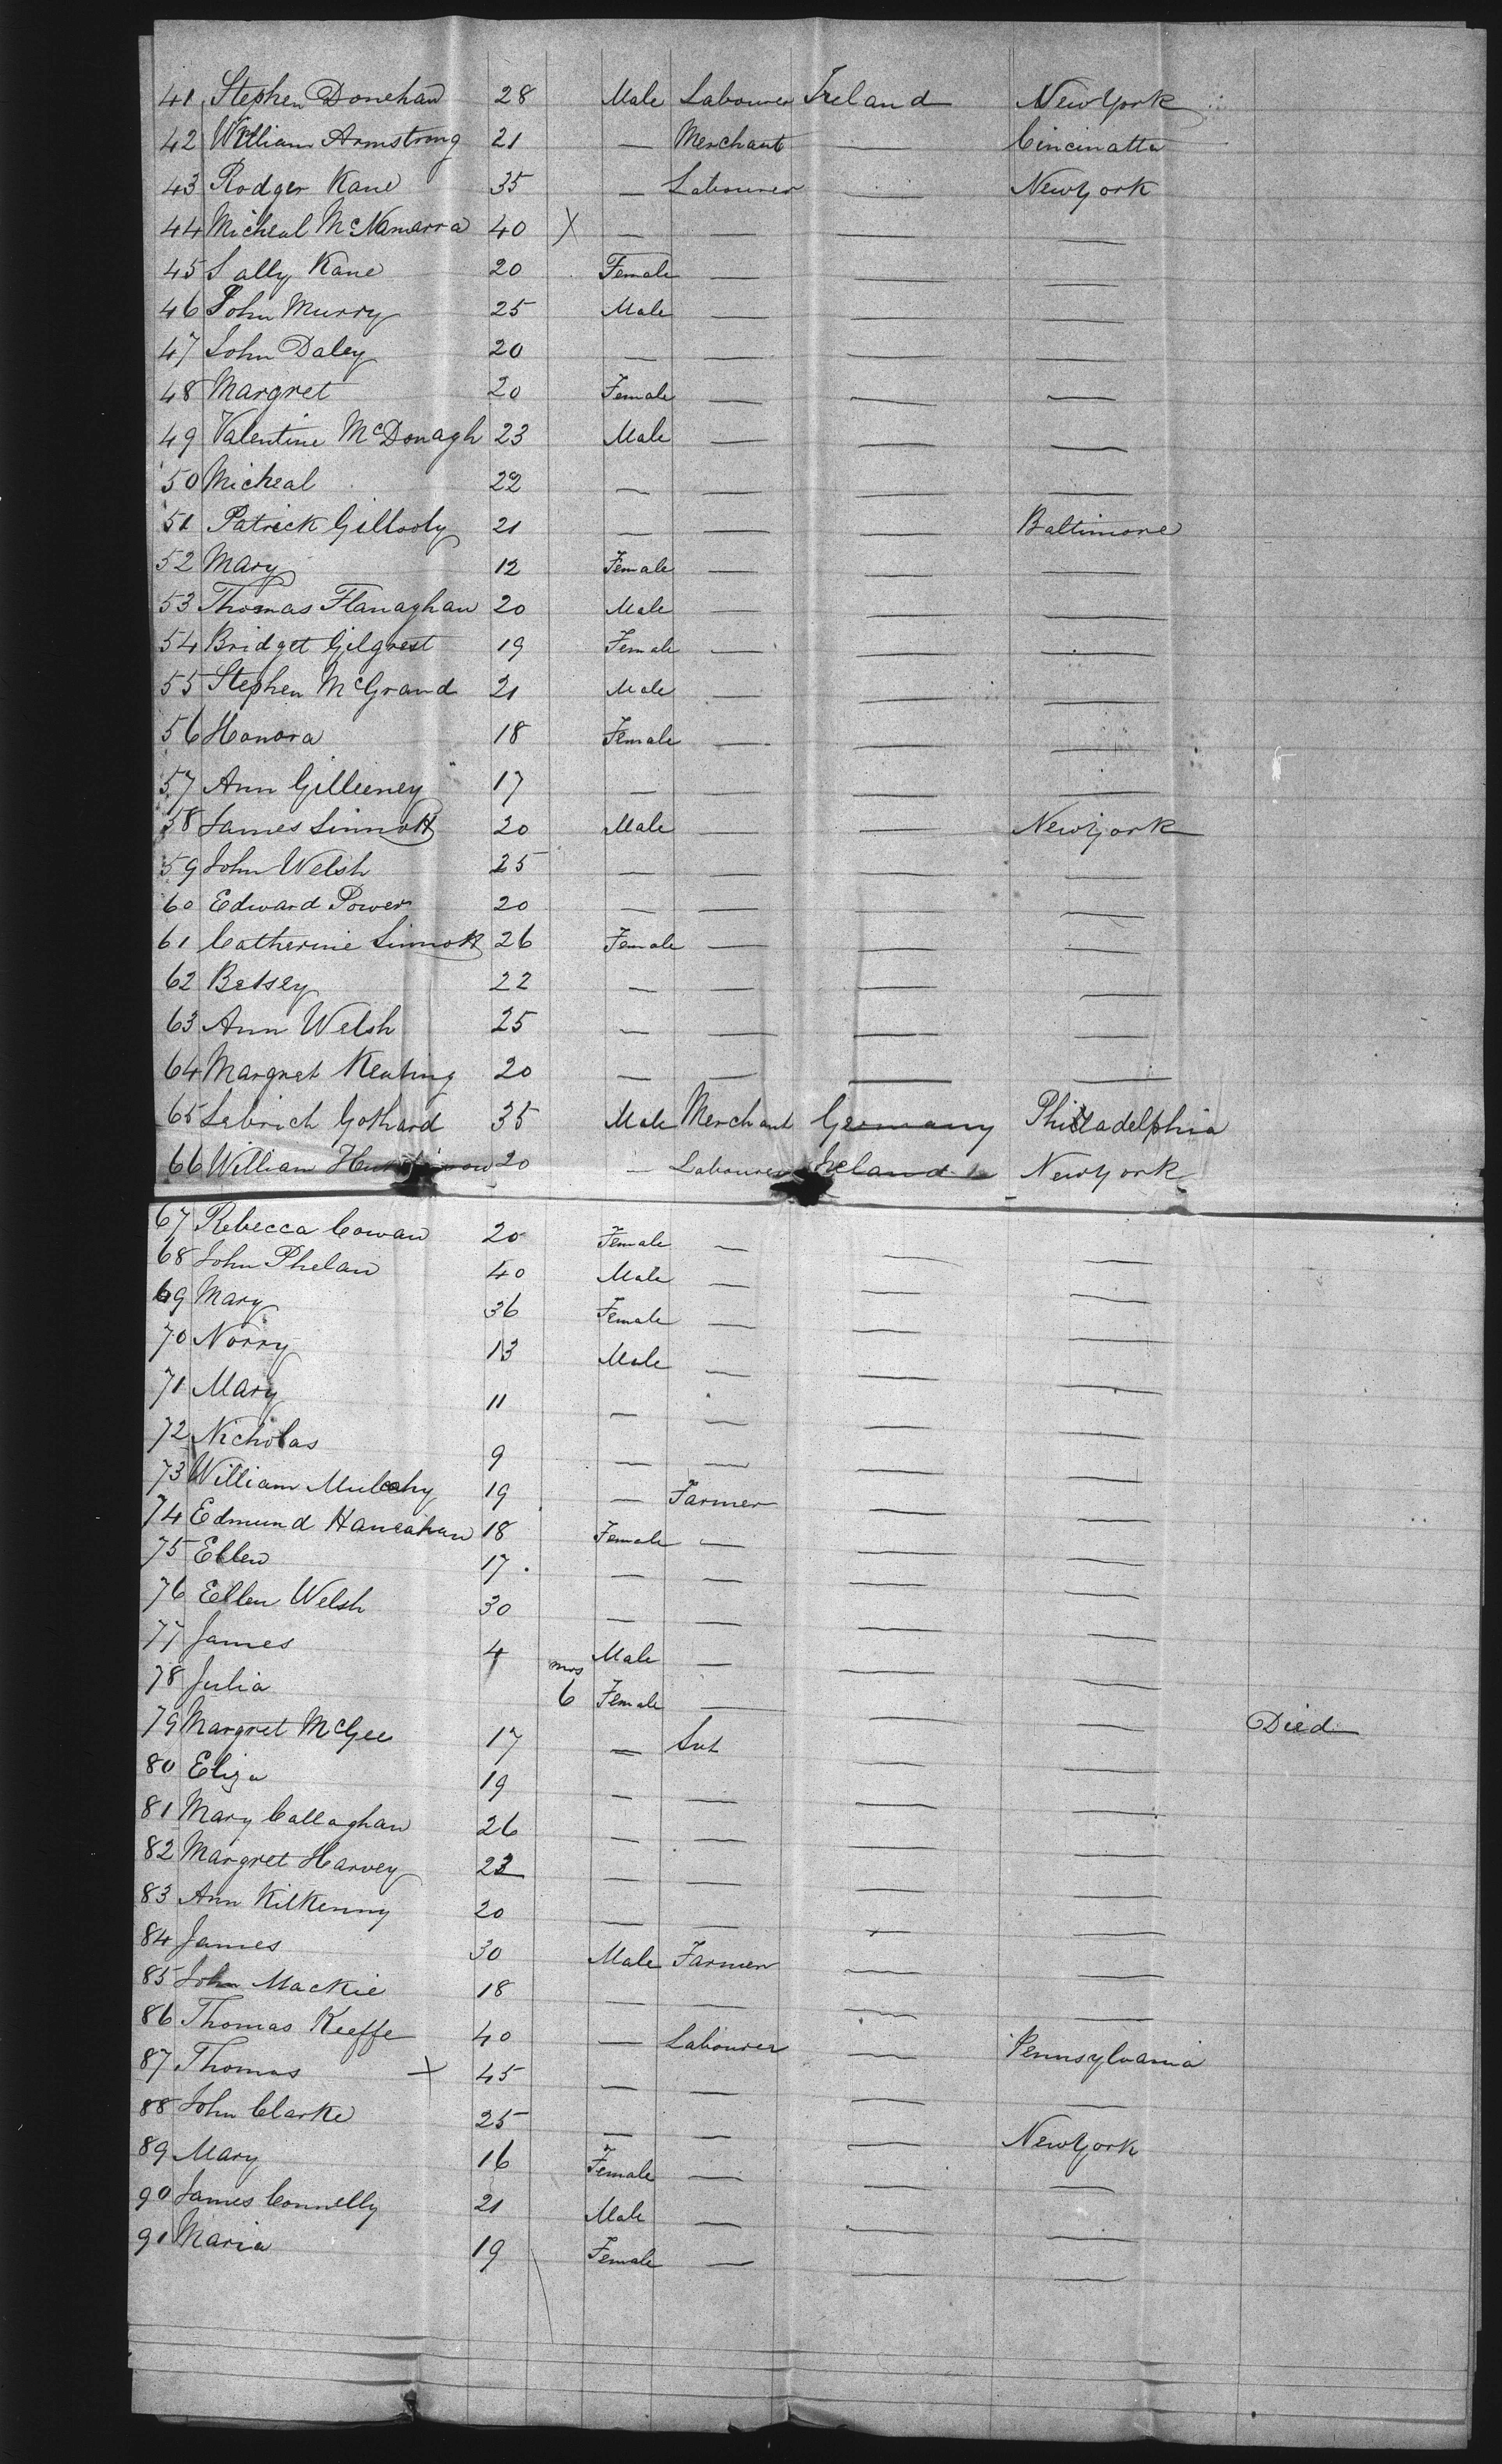 41 Stephen Donehan 28 Male Labourer Ireland New York
42 William Armstrong 21 — Merchant — Cincinatta
43 Rodger Kane 35 — Labourer — New York
44 Micheal McNamarra 40 X — — — —
45 Sally Kane 20 Female — — —
46 John Murry 25 Male — — —
47 John Daley 20 — — — —
48 Margret 20 Female — — —
49 Valentine McDonagh 23 Male — — —
50 Micheal 22 — — — —
51 Patrick Gillooly 21 — — — Baltimore
52 Mary 12 Female — — —
53 Thomas Flanaghan 20 Male — — —
54 Bridget Gilgrest 19 Female — — —
55 Stephen McGrand 21 Male — — —
56 Honora 18 Female — — —
57 Ann Gilleeney 17 — — — —
58 James Sinnott 20 Male — — New York
59 John Welsh 25 — — — —
60 Edward Power 20 — — — —
61 Catherine Sinnott 26 Female — — —
62 Betsey 22 — — — —
63 Ann Welsh 25 — — — —
64 Margret Keating 20 — — — —
65 Lebrich Gothard 35 Male Merchant Germany Philadelphia
66 William 20 — Labourer Ireland New York
67 Rebecca Cowan 20 Female — — —
68 John Phelan 40 Male — — —
69 Mary 36 Female — — —
70 Norry 13 Male — — —
71 Mary 11 — — — —
72 Nicholas 9 — — — —
73 William Mulcahy 19 — Farmer — —
74 Edmund Hanrahan 18 Female — — —
75 Ellen 17 — — — —
76 Ellen Welsh 30 — — — —
77 James 4 Male — — —
78 Julia mos 6 Female — — — Died
79 Margret McGee 17 — — —
80 Eliza 19 — — — —
81 Mary Callaghan 26 — — — —
82 Margret Harvey 23 — — — —
83 Ann Kilkenny 20 — — — —
84 James 30 Male Farmer — —
85 John Mackie 18 — — — —
86 Thomas Keeffe 40 — Labourer — Pennsylvania
87 Thomas X 45 — — — —
88 John Clarke 25 — — — New York
89 Mary 16 Female — — —
90 James Connelly 21 Male — — —
91 Maria 19 Female — — —